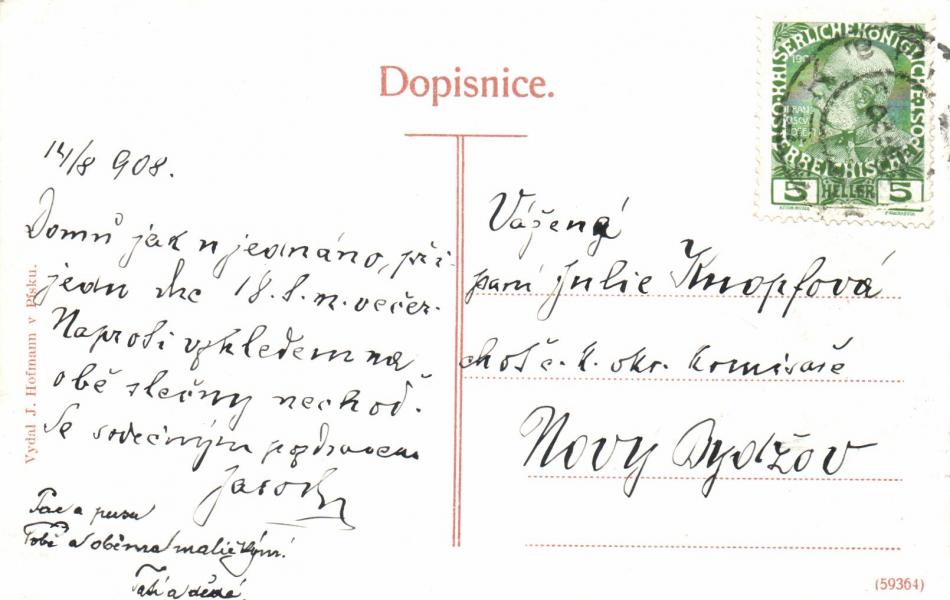 Dopisnice.
14/8 908.
Domů jak ujednáno, při-
jedu dne 18. t. m. večer.
Naproti vzhledem na
obě slečny nechoď.
Se srdečným pozdravem
Vydal J. Hofmann v Písku.
Pac a pusu
Tobě a oběma maličkým!
Táta a děda
Vážená
paní Julie Knopfová
choť c. k. okr. komisaře
Nový Bydžov
KAISERLICHE KÖNIGLICHE ÖSTERREICHISCHE
5 HELLER 5
(59364)